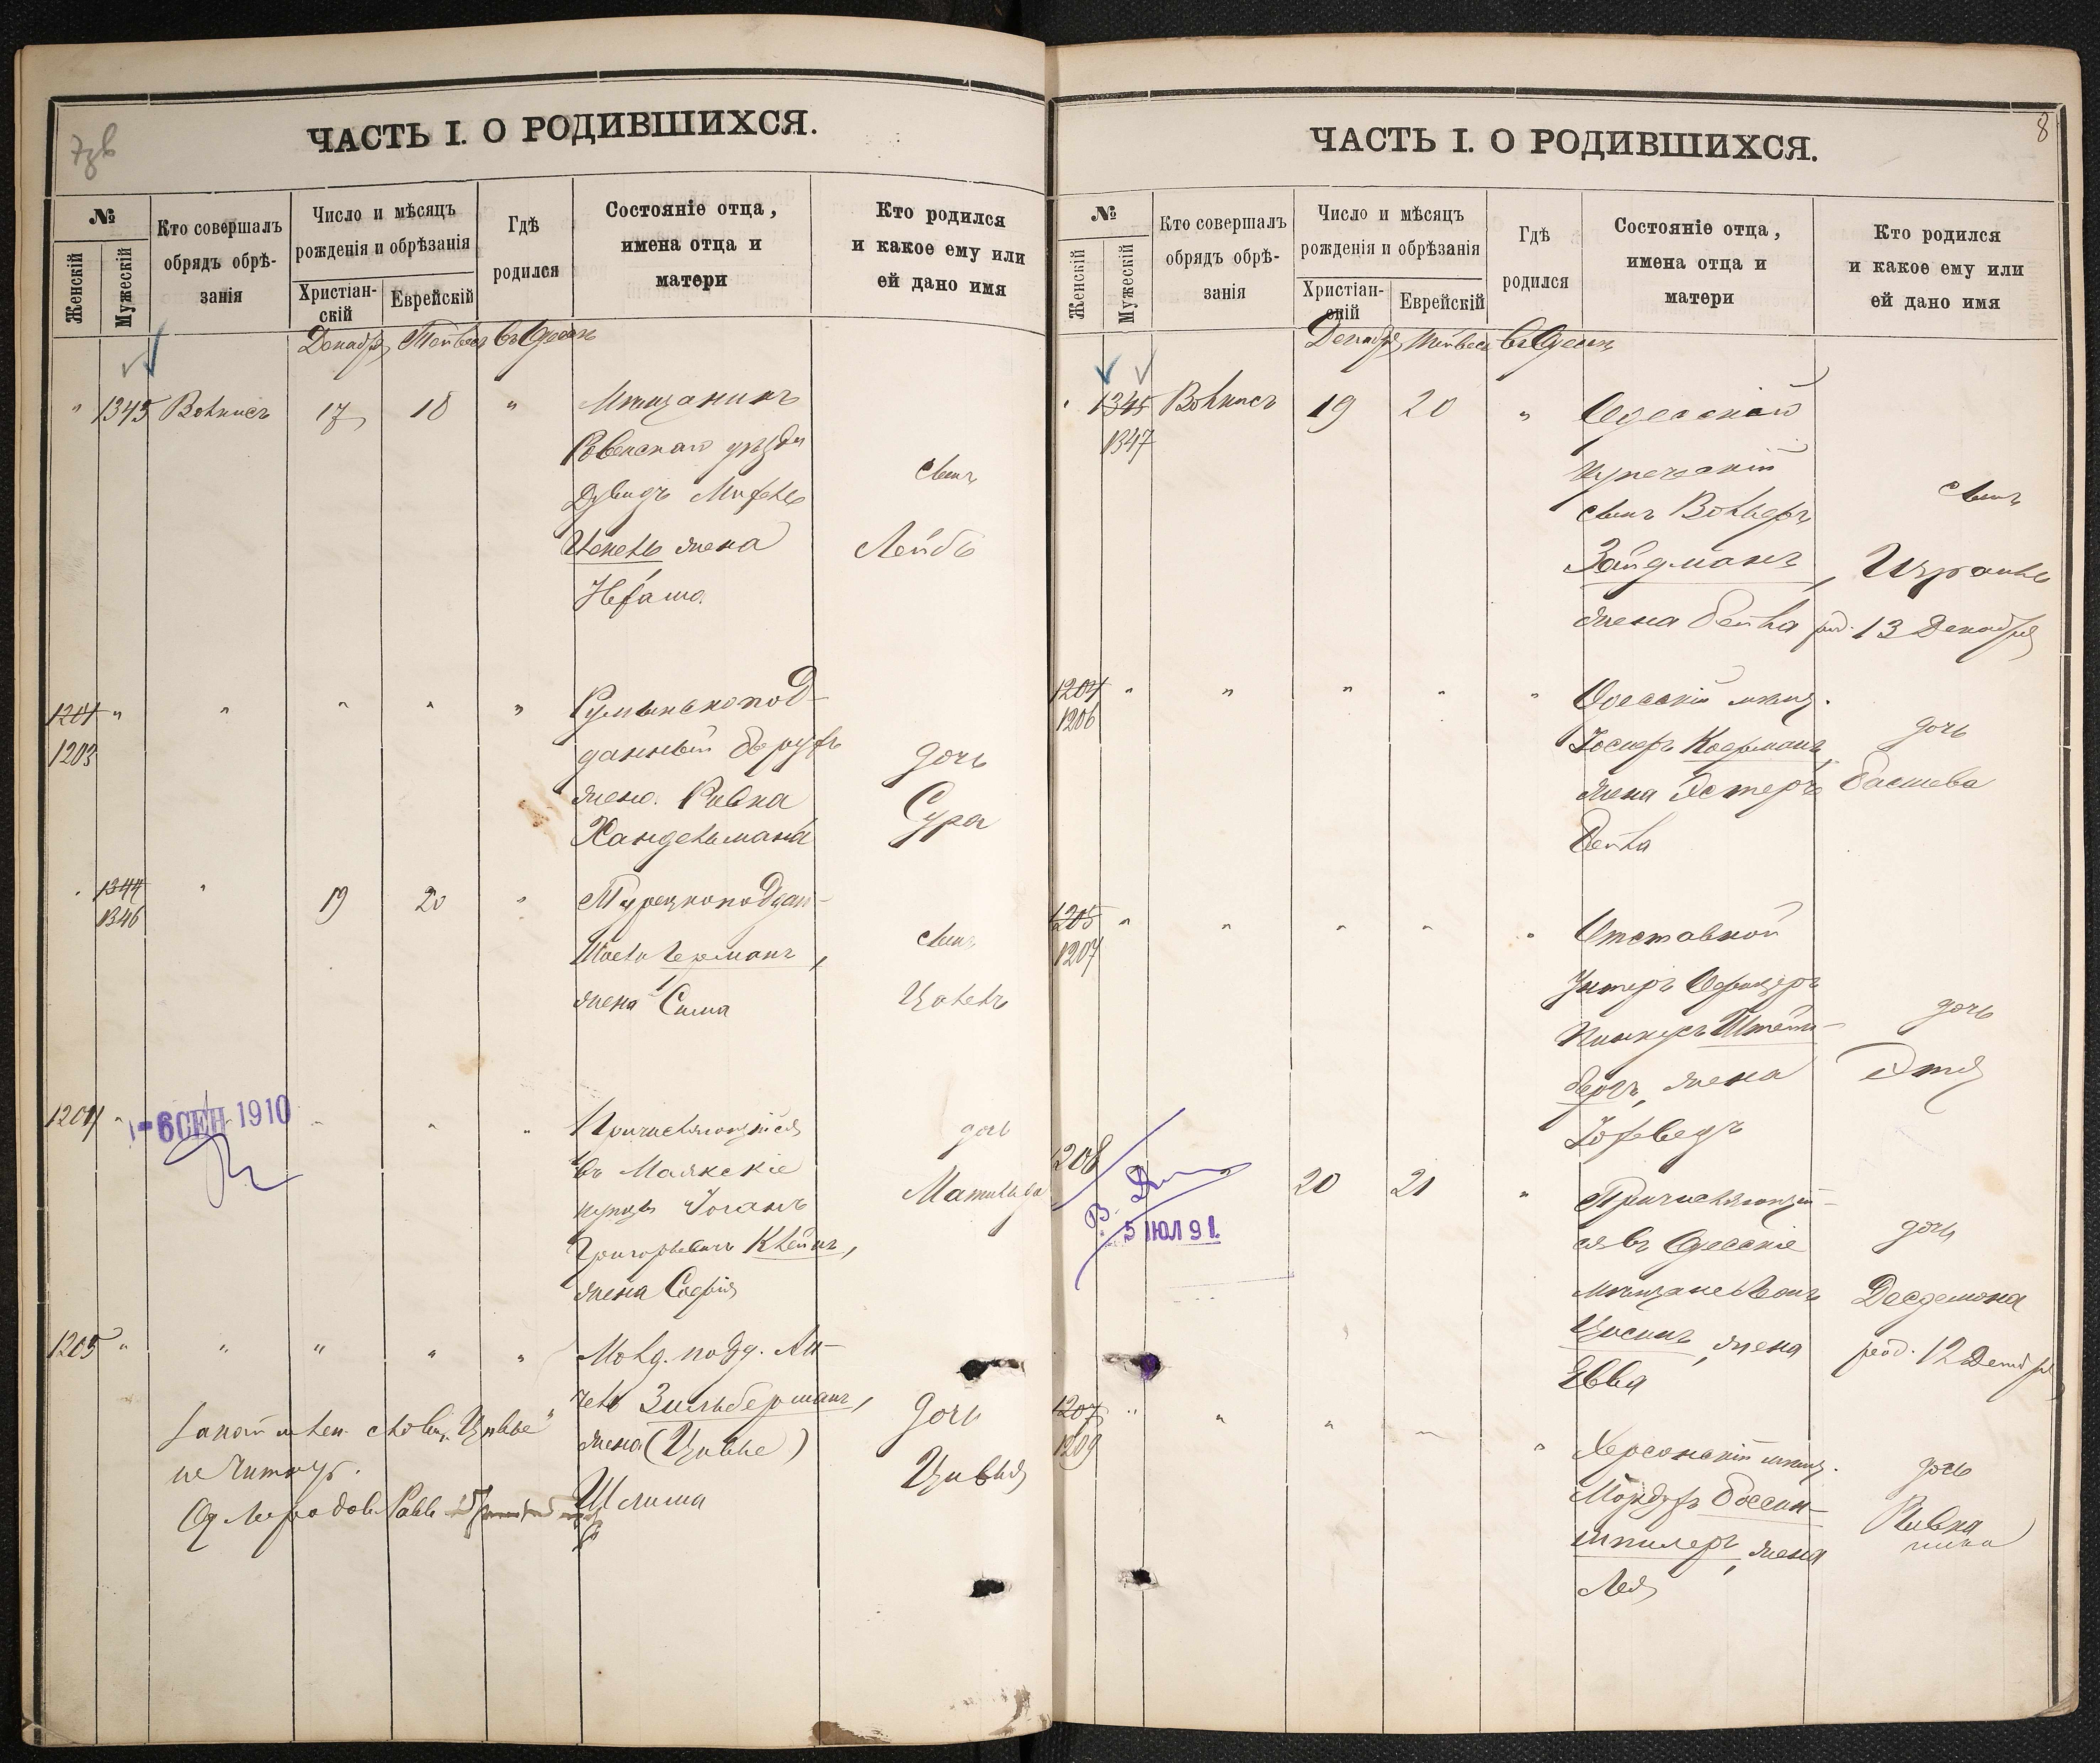 7зв
ЧАСТЬ I. О РОДИВШИХСЯ.
№
Женскій
Мужескій
Кто совершалъ
обрядъ обрѣ-
занія
Число и мѣсяцъ
рожденія и обрѣзанія
Христіан-
скій
Еврейскій
Гдѣ
родился
Состояніе отца,
имена отца и
матери
Кто родился
и какое ему или
ей дано имя
Декабря Тейвеса въ Одессѣ
" 1345 17 18 "
Мѣщанинъ
Ровенскаго уѣзда
Дувидъ
жена
сынъ
Лейбъ
1201 " " " " "
1203
Румынскопод-
данный Борухъ
жена Ривка
Хандельмана
дочь
Сура
1344 " 19 20 "
1346
Турецкоподдан-
Германъ,
жена Сима
сынъ
1204 "
- 6 СЕН 1910
Причисляющійся
въ Маякскіе
купцы Іоганъ
Григорьевичъ Клейнъ,
жена Софія
дочь
Матильда
1205 " " " " " "
Молд. подд. Ан-
чель Зильберманъ,
жена (Цивье)
Шлима
дочь
Цивья
слово "Цивье"
не читать.
Од. Равв.
8
ЧАСТЬ I. О РОДИВШИХСЯ.
№
Женскій
Мужескій
Кто совершалъ
обрядъ обрѣ-
занія
Число и мѣсяцъ
рожденія и обрѣзанія
Христіан-
скій
Еврейскій
Гдѣ
родился
Состояніе отца,
имена отца и
матери
Кто родился
и какое ему или
ей дано имя
Декабря Тейвеса въ Одессѣ
" 1345 19 20 "
1347
Одесскій
купеческій
сынъ Вольфъ
Зайдманъ,
жена Бейла
сынъ
Израиль
род. 13 Декабря
1204 " " " " "
1206
Одесскій мѣщ.
Іосифъ
жена Эстеръ
Бейла
дочь
Басшева
1205 " " " " "
1207
Отставной
Унтеръ Офицеръ
Пинкусъ Штейн-
бергъ, жена
Іохведъ
дочь
Этля
1208 20 21 "
5 ІЮЛ 91.
Причисляющій-
ся въ Одесскіе
мѣщане Леонъ
жена
Евва
дочь
Десдемона
род. 12 Декабря
1207 " " " "
1209
Херсонскій мѣщ.
Мордухъ Боссин-
шпилеръ, жена
Лея
дочь
Ривка